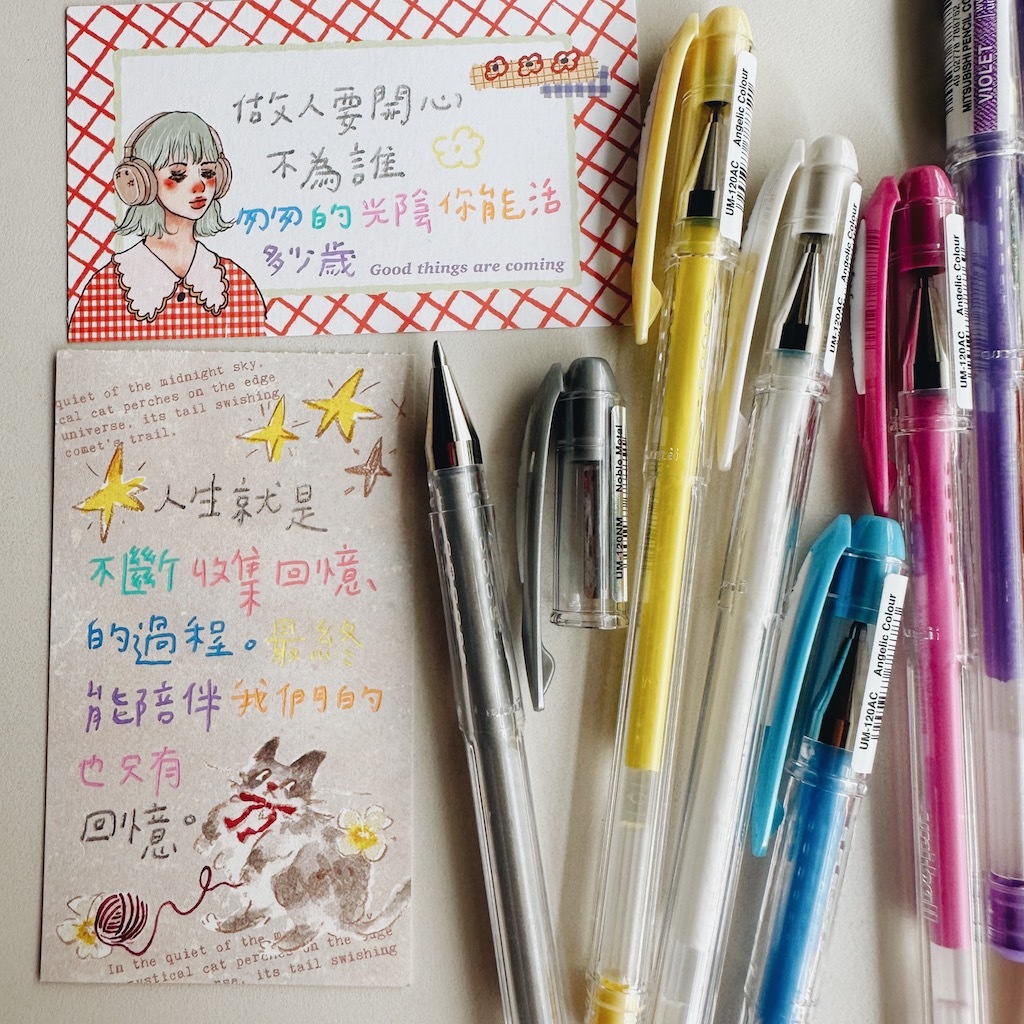 做人要開心
不為誰
匆匆的光陰你能活
多少歲
Good things are coming
quiet of the midnight sky,
cal cat perches on the edge
universe, its tail swishing
comet's trail.
人生就是
不斷收集回憶
的過程。最終
能陪伴我們的
也只有
回憶。
In the quiet of the m
ystical cat perches on the edge
rse, its tail swishing
UM-120NM Noble Metal
UM-120AC Angelic Colour
UM-120AC Angelic Colour
UM-120AC Angelic Colour
UM-120AC Angelic Colour
MITSUBISHI PENCIL CO
VIOLET